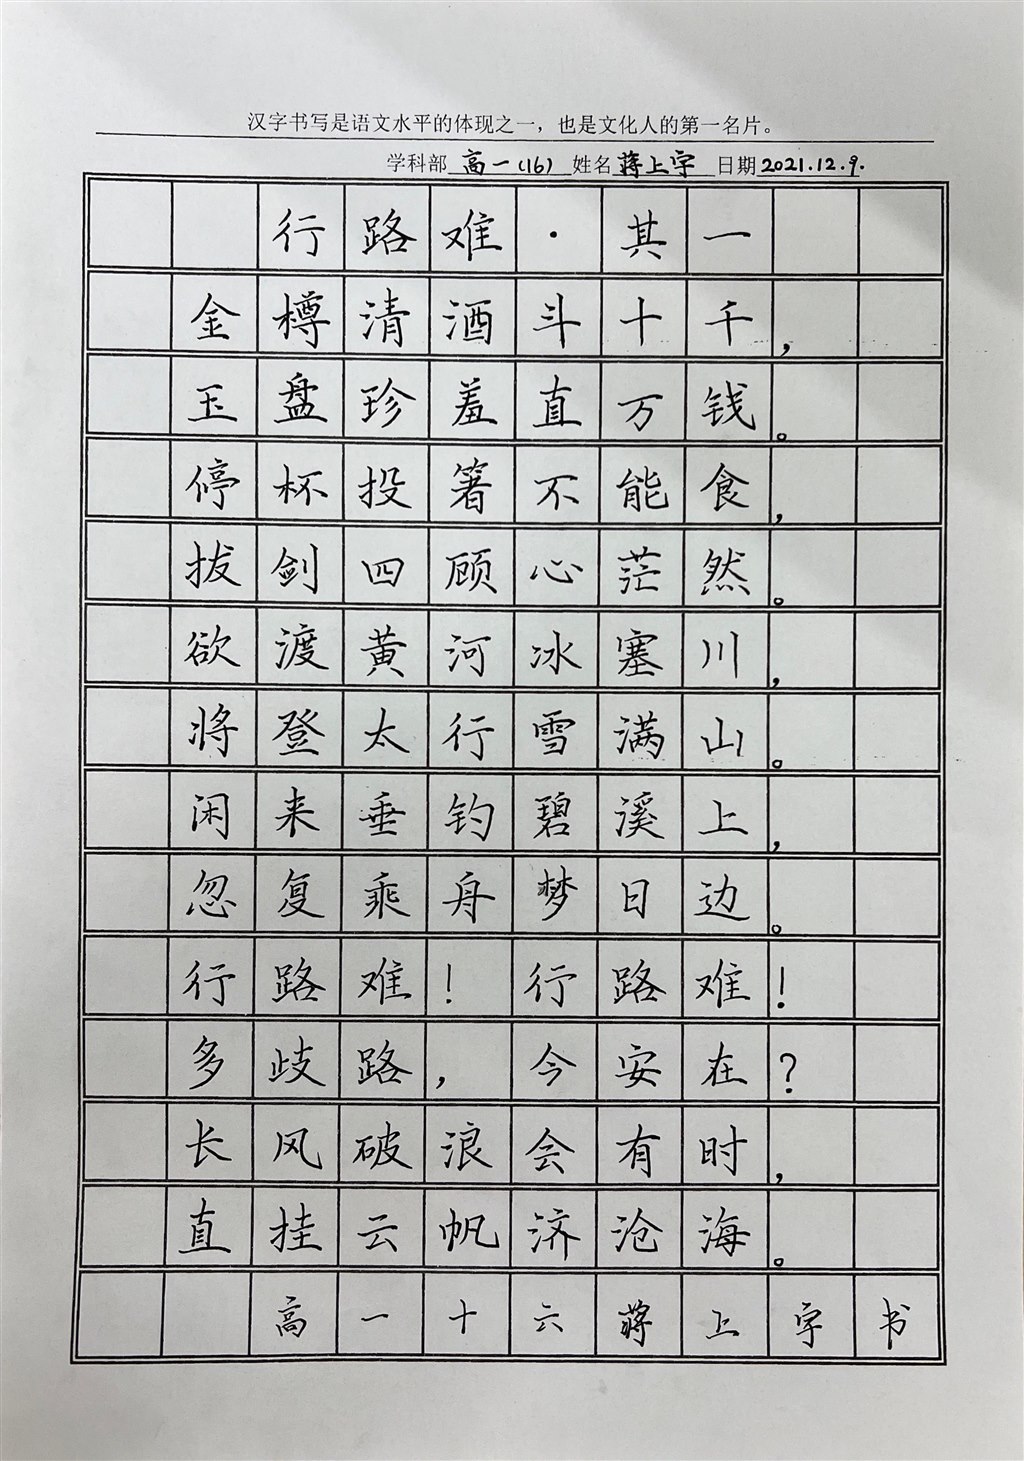 汉字书写是语文水平的体现之一，也是文化人的第一名片。
学科部 高一(16) 姓名 蒋上字 日期 2021.12.9.
行路难·其一
金樽清酒斗十千，
玉盘珍羞直万钱。
停杯投箸不能食，
拔剑四顾心茫然。
欲渡黄河冰塞川，
将登太行雪满山。
闲来垂钓碧溪上，
忽复乘舟梦日边。
行路难！行路难！
多歧路，今安在？
长风破浪会有时，
直挂云帆济沧海。
高一十六蒋上字书